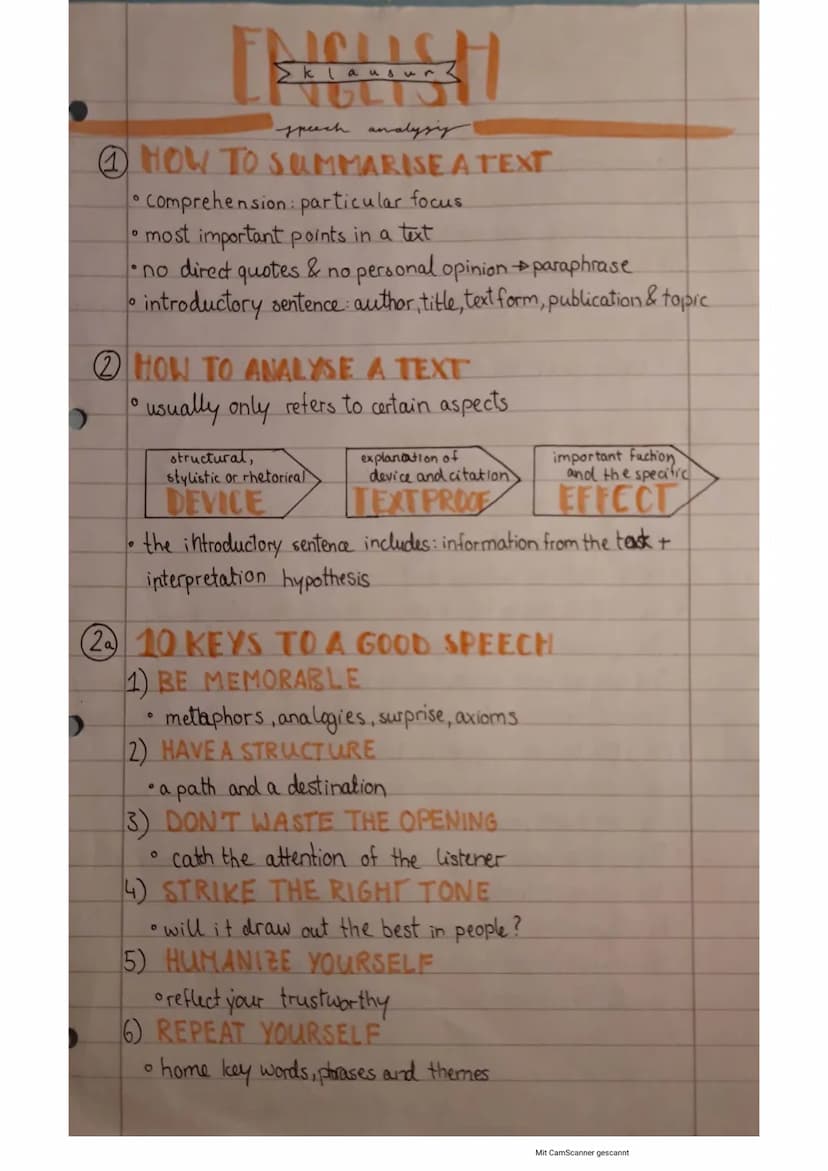 ENGLISH
klausur
speech analysis
1 HOW TO SUMMARISE A TEXT
• comprehension: particular focus
• most important points in a text
• no direct quotes & no personal opinion → paraphrase
• introductory sentence: author, title, text form, publication & topic
2 HOW TO ANALYSE A TEXT
• usually only refers to certain aspects
structural,
stylistic or rhetorical
DEVICE
explanation of
device and citation
TEXTPROOF
important fuction
and the specific
EFFECT
• the introductory sentence includes: information from the task +
interpretation hypothesis
2a 10 KEYS TO A GOOD SPEECH
1) BE MEMORABLE
• metaphors, analogies, surprise, axioms
2) HAVE A STRUCTURE
• a path and a destination
3) DON'T WASTE THE OPENING
• cath the attention of the listener
4) STRIKE THE RIGHT TONE
• will it draw out the best in people?
5) HUMANIZE YOURSELF
• reflect your trustworthy
6) REPEAT YOURSELF
• home key words, phrases and themes
Mit CamScanner gescannt